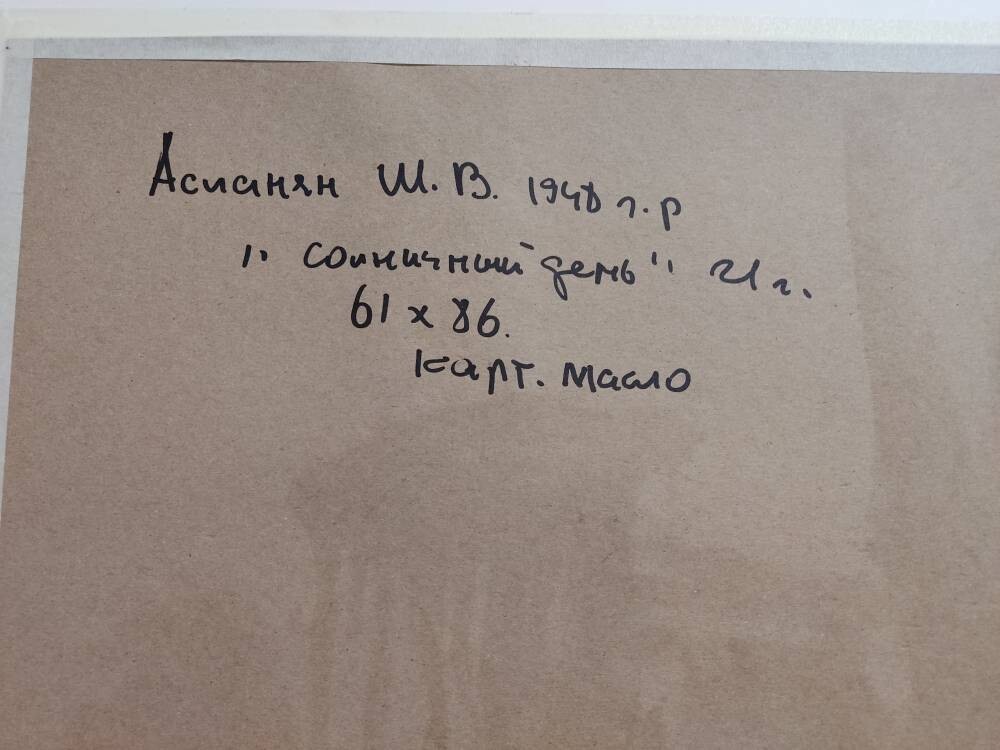 Асланян Ш. В. 1948 г. р
"солничный день" 21 г.
61 х 86.
карт. масло